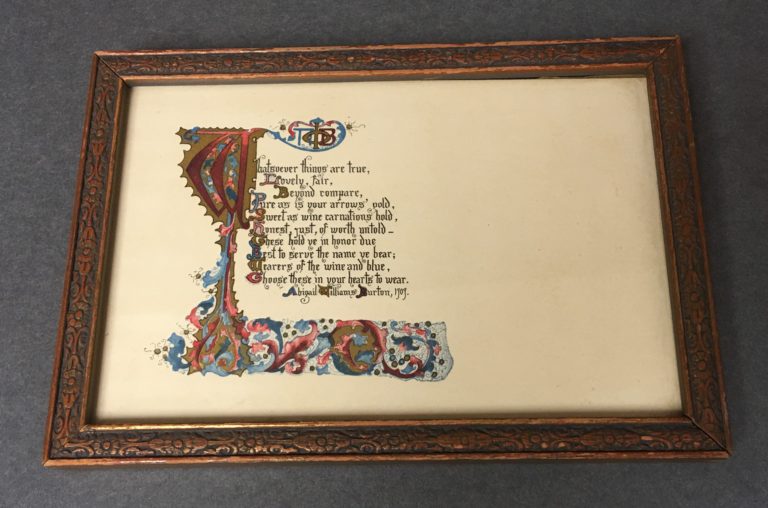 ΠΒΦ
Whatsoever things are true,
Lovely, fair,
Beyond compare,
Pure as is your arrows' gold,
Sweet as wine carnations hold,
Honest, just, of worth untold—
These hold ye in honor due
Best to serve the name ye bear;
Wearers of the wine and blue,
Choose these in your hearts to wear.
Abigail Williams Burton, 1909.